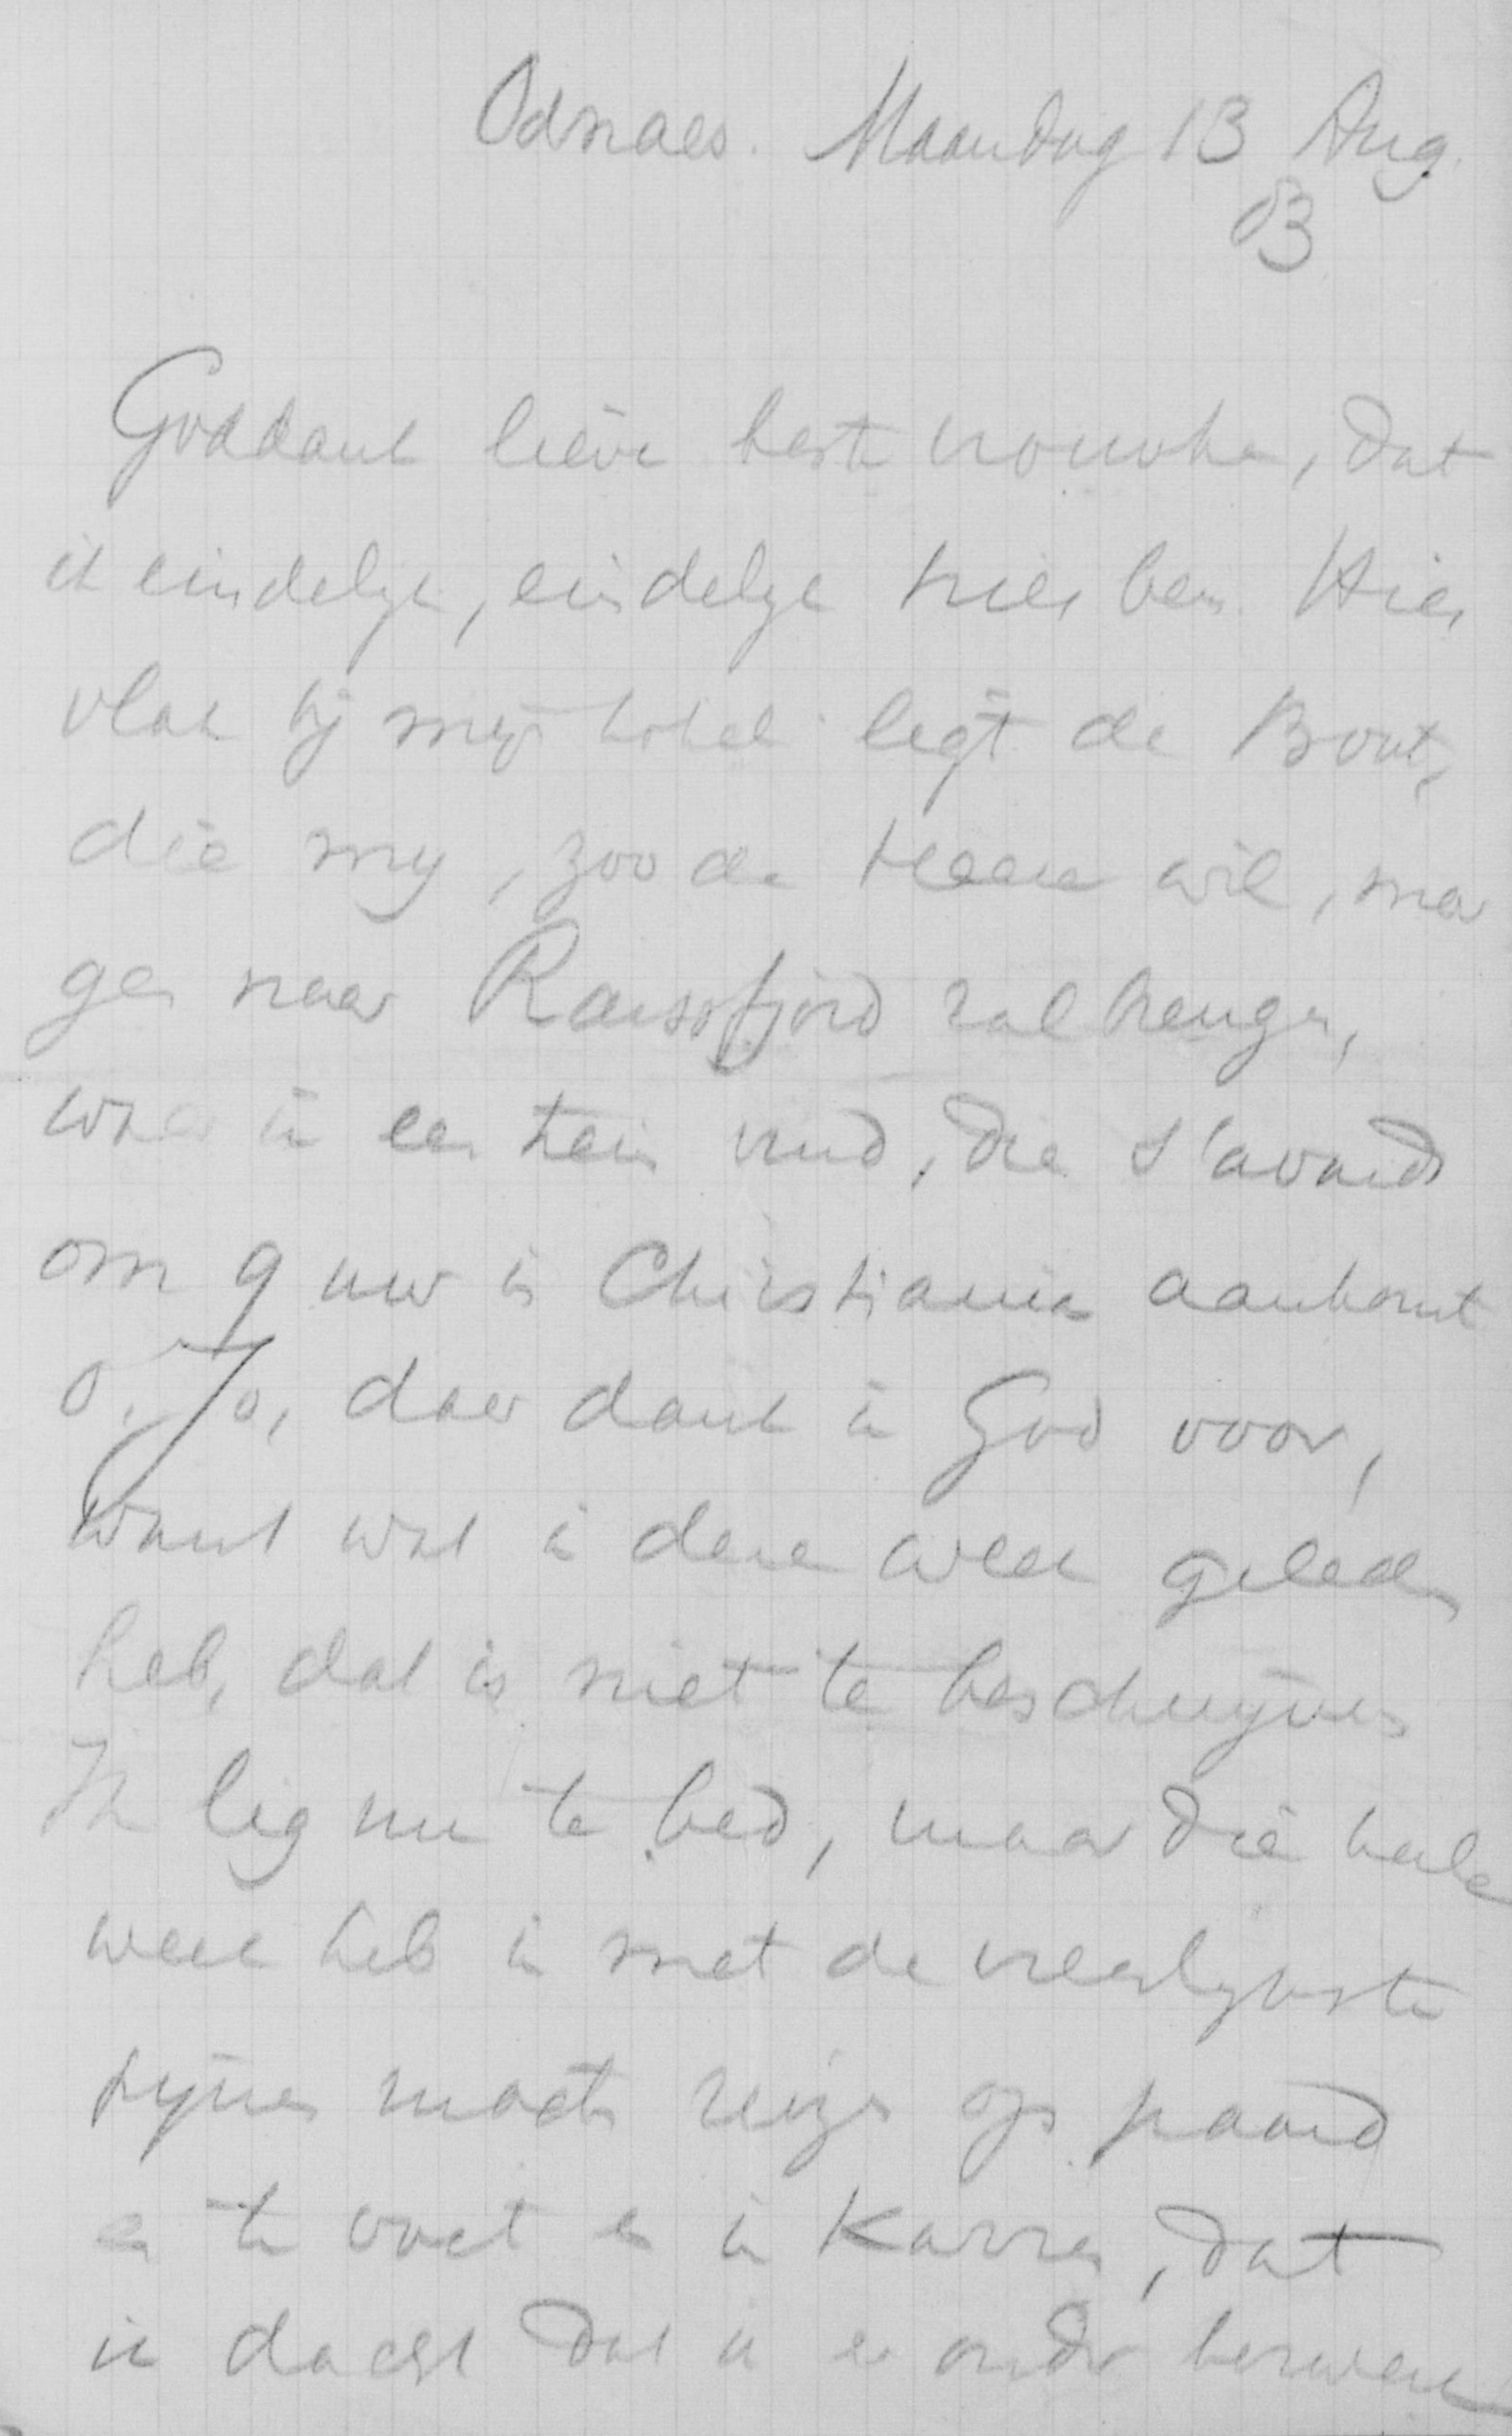 Odnaes. Maandag 13 Aug.
83
Goddank lieve beste vrouwke, dat
ik eindelyk, eindelyk hier ben. Hier
vlak bij mijn hotel legt de Boot,
die my, zoo de Heere wil, mor
gen naar Randsfjord zal brengen,
waar ik een trein vind, die s'avonds
om 9 uur in Christiania aankomt
o, Jo, daar dank ik God voor,
want wat ik deze week geleden
heb, dat is niet te beschrijven
Ik lig nu te bed, maar die heele
week heb ik met de vreeslykste
pijnen moeten reizen op paard
en te voet en in Karren, dat
ik dacht dat ik er onder bezweek